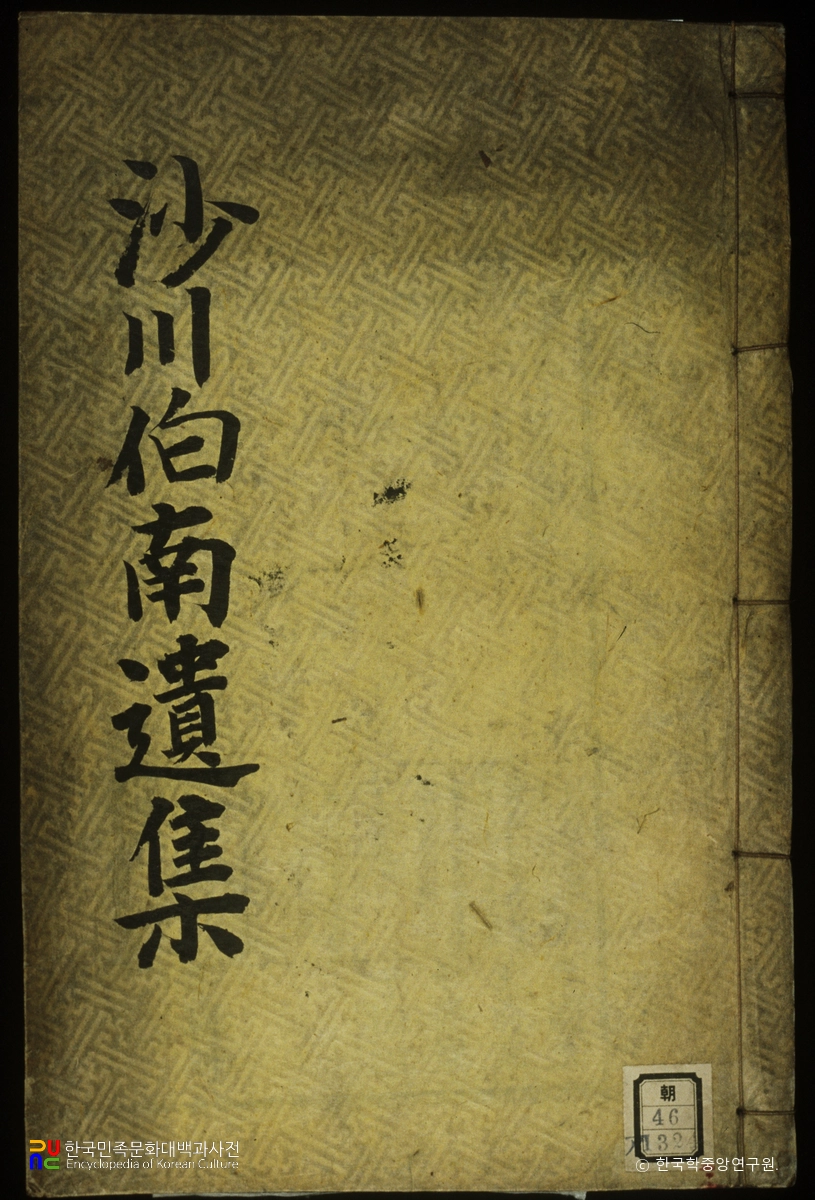 沙川伯南遺集
朝
46
한국민족문화대백과사전
Encyclopedia of Korean Culture
© 한국학중앙연구원.